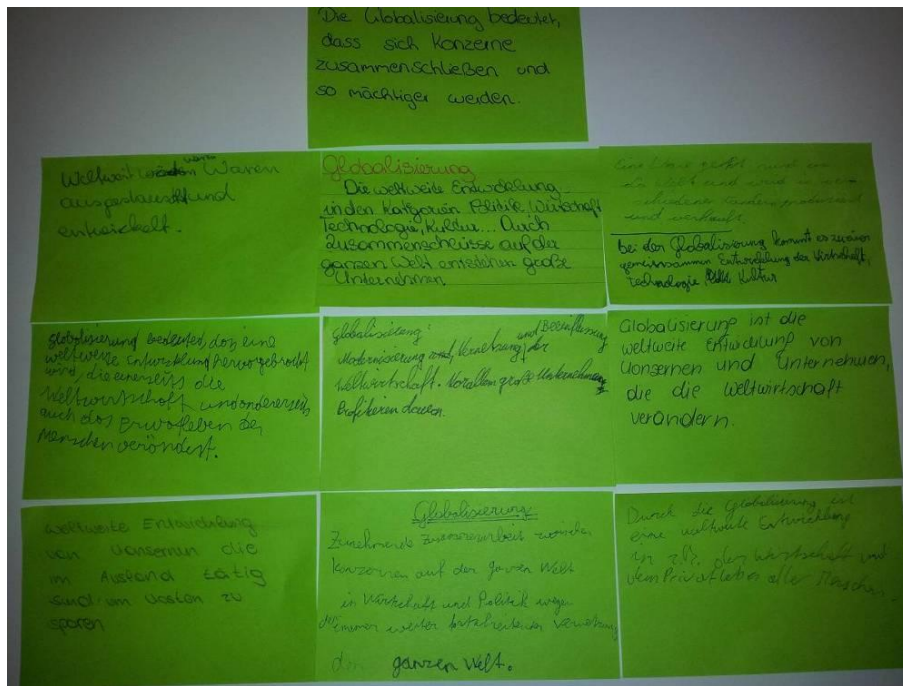 Die Globalisierung bedeutet,
dass sich Konzerne
zusammenschließen und
so mächtiger werden.
Weltweit werden Waren
ausgetauscht und
entwickelt.
Globalisierung
Die weltweite Entwicklung
in den Kategorien Politik, Wirtschaft
Technologie, Kultur... Durch
Zusammenschlüsse auf der
ganzen Welt entstehen große
Unternehmen
Eine
die Welt und wird in
produziert
und verkauft.
bei der Globalisierung kommt es zu einer
gemeinsamen Entwicklung der Wirtschaft,
Technologie, Kultur
Globalisierung bedeutet, das eine
weltweite Entwicklung hervorgebracht
wird, die einerseits die
Weltwirtschaft und andererseits
auch das Erwerbsleben der
Menschen verändert.
Globalisierung:
Modernisierung und Vernetzung und Beeinflussung der
Weltwirtschaft. Vorallem große Unternehmen
Profitieren davon.
Globalisierung ist die
weltweite Entwicklung von
Konsernen und Unternehmen,
die die Weltwirtschaft
verändern.
weltweite Entwicklung
von Konsernen die
im Ausland tätig
sind um Kosten zu
sparen
Globalisierung
Zunehmende Zusammenarbeit zwischen
Konzernen auf der ganzen Welt
in Wirtschaft und Politik wegen
der immer weiter fortschreitenden Vernetzung
der ganzen Welt.
Durch die Globalisierung ist
eine weltweite Entwicklung
in z.B. der Wirtschaft und
dem Privatleben aller Menschen.